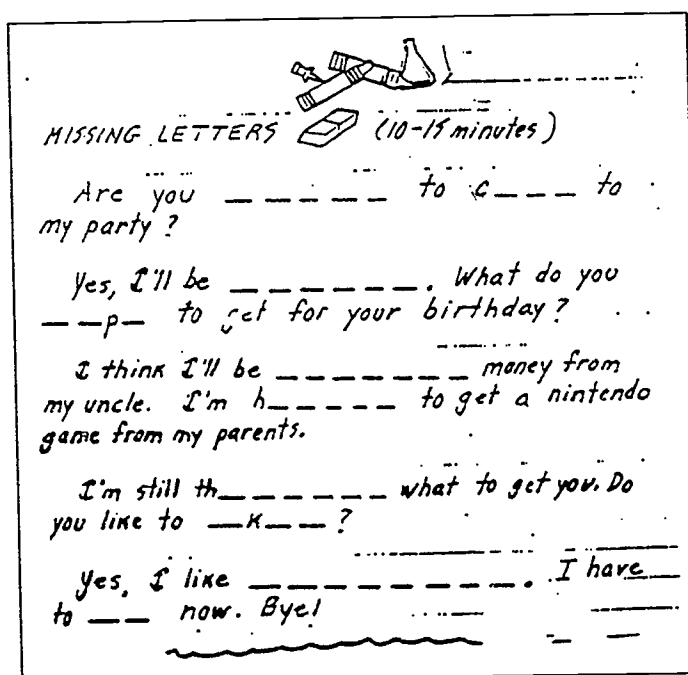 MISSING LETTERS (10-15 minutes)
Are you _ _ _ _ _ _ to c _ _ _ to
my party?
Yes, I'll be _ _ _ _ _ _ _. What do you
_ _ p _ to get for your birthday?
I think I'll be _ _ _ _ _ _ _ _ money from
my uncle. I'm h _ _ _ _ _ to get a nintendo
game from my parents.
I'm still th _ _ _ _ _ _ what to get you. Do
you like to _ K _ _ _?
Yes, I like _ _ _ _ _ _ _ _ _. I have
to _ _ now. Bye!